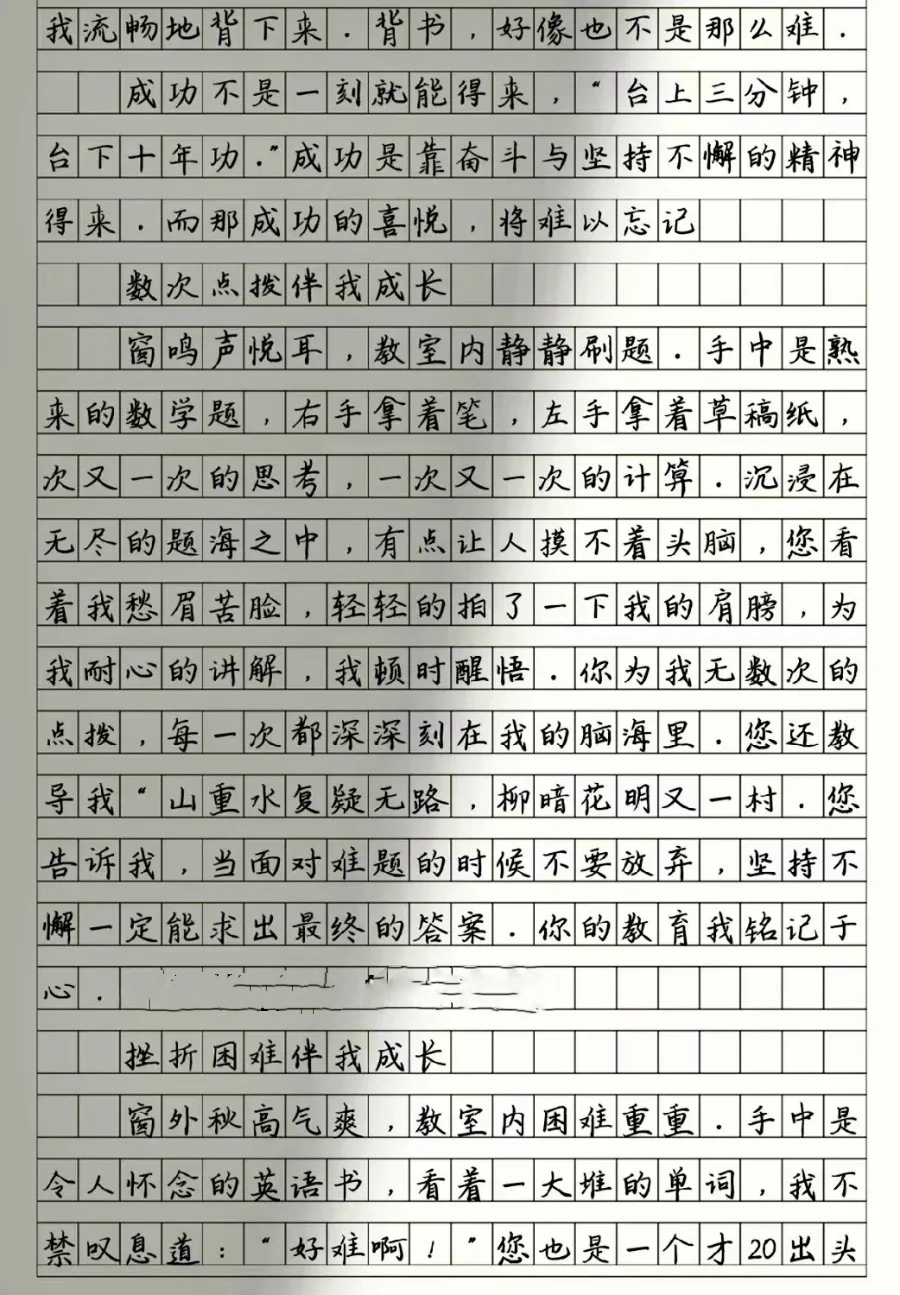 我流畅地背下来.背书,好像也不是那么难.
成功不是一刻就能得来,“台上三分钟,
台下十年功.”成功是靠奋斗与坚持不懈的精神
得来.而那成功的喜悦,将难以忘记
数次点拨伴我成长
窗鸣声悦耳,教室内静静刷题.手中是熟
来的数学题,右手拿着笔,左手拿着草稿纸,
次又一次的思考,一次又一次的计算.沉浸在
无尽的题海之中,有点让人摸不着头脑,您看
着我愁眉苦脸,轻轻的拍了一下我的肩膀,为
我耐心的讲解,我顿时醒悟.你为我无数次的
点拨,每一次都深深刻在我的脑海里.您还教
导我“山重水复疑无路,柳暗花明又一村.您
告诉我,当面对难题的时候不要放弃,坚持不
懈一定能求出最终的答案.你的教育我铭记于
心.
挫折困难伴我成长
窗外秋高气爽,教室内困难重重.手中是
令人怀念的英语书,看着一大堆的单词,我不
禁叹息道:“好难啊!”您也是一个才20出头